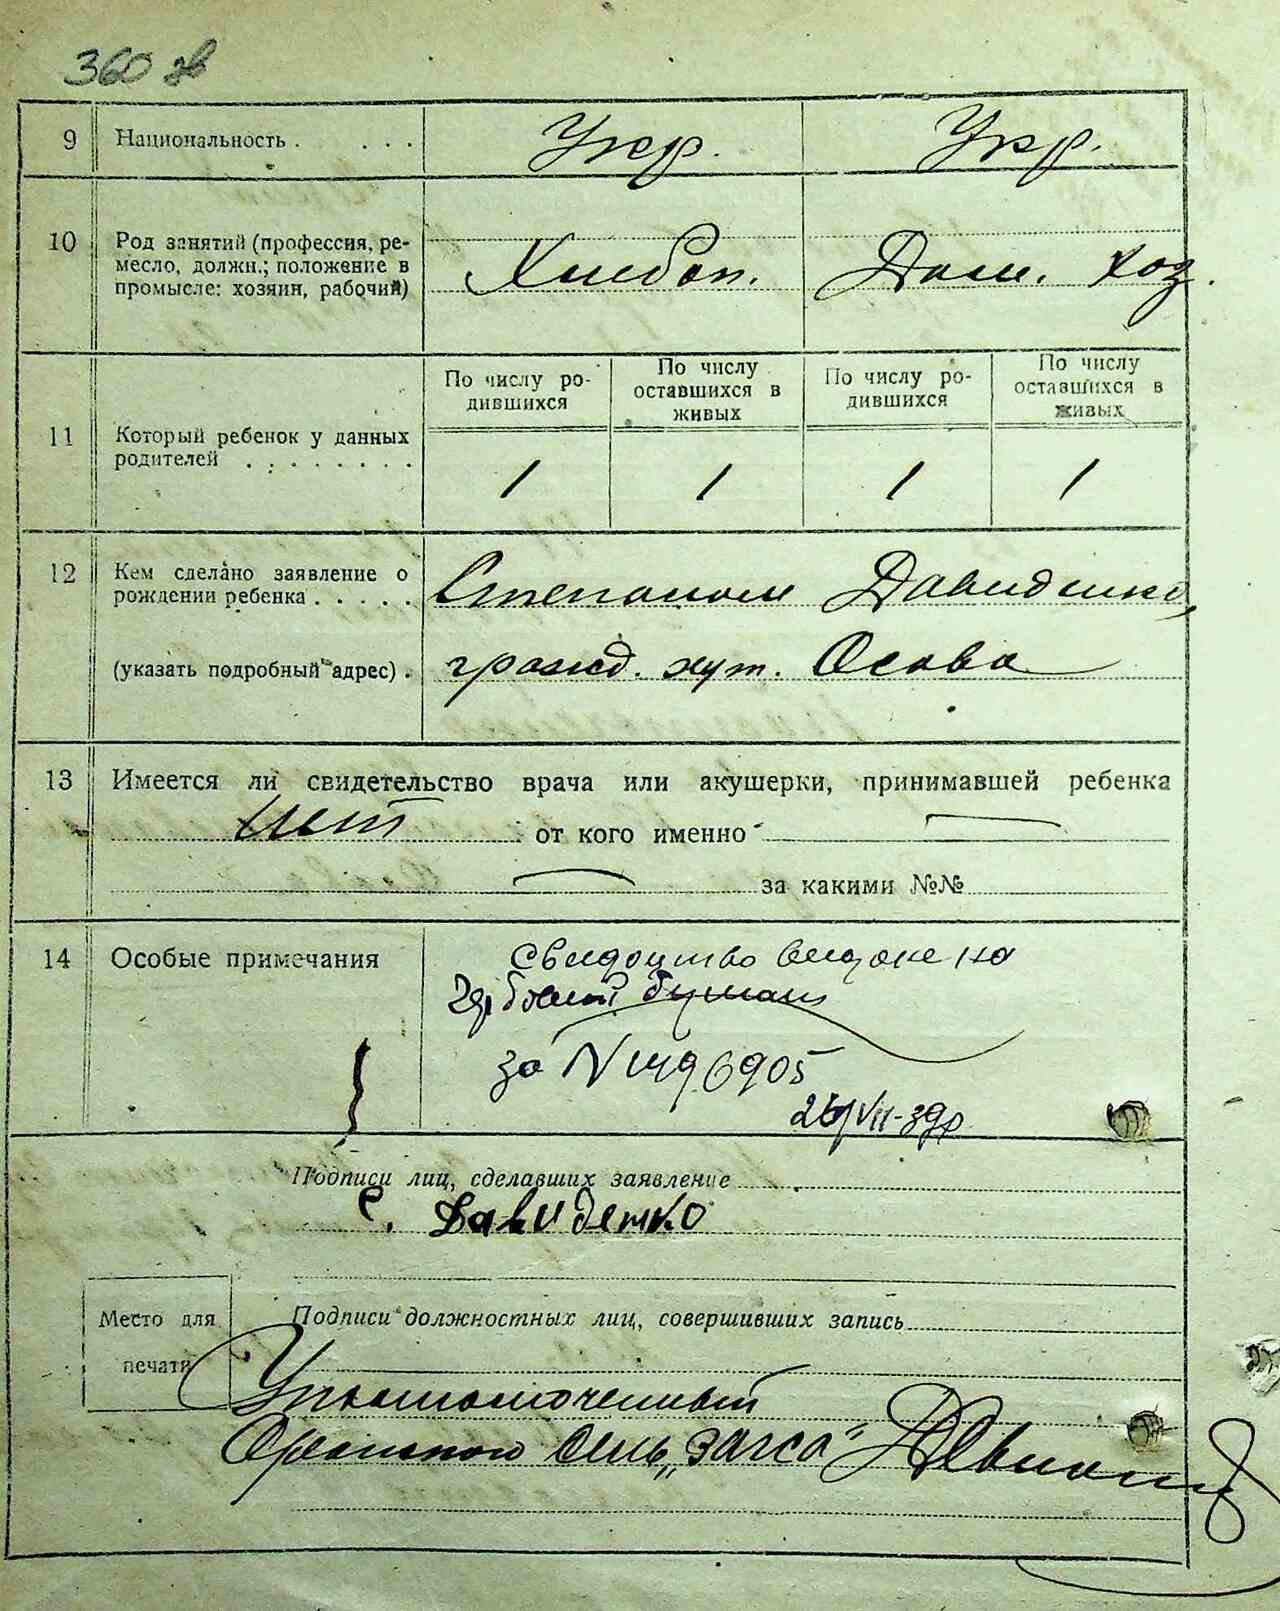 360 зв
9 Национальность . . . . Укр. Укр.
10 Род занятий (профессия, ре-
месло, должн.; положение в
промысле: хозяин, рабочий)
Хлебоп. Дом. хоз.
По числу ро-
дившихся
По числу
оставшихся в
живых
По числу ро-
дившихся
По числу
оставшихся в
живых
11 Который ребенок у данных
родителей . . . . . . . .
1 1 1 1
12 Кем сделано заявление о
рождении ребенка . . . . .
Степаном Давиденко,
(указать подробный адрес) . гражд. хут. Осова
13 Имеется ли свидетельство врача или акушерки, принимавшей ребенка
нет от кого именно —
— за какими №№
14 Особые примечания
Свидоцтво видане на
бумаги
за N
26/VII-39р
Подписи лиц, сделавших заявление
С. Давиденко
Место для
печати
Подписи должностных лиц, совершивших запись
Уполномоченный
сель „загса"